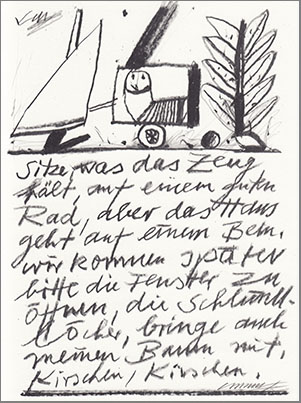 Sitze, was das Zeug
hält, auf einem guten
Rad, aber das Haus
geht auf einem Bein.
wir kommen später
bitte die Fenster zu
öffnen, die Schlüssel-
löcher, bringe auch
meinen Baum mit,
Kirschen, Kirschen.